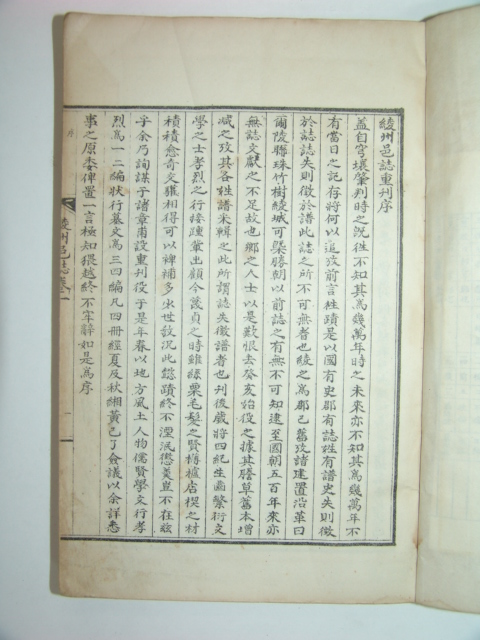 綾州邑誌重刊序
盖自穹壤肇判時之旣徃不知其爲幾萬年時之未來亦不知其爲幾萬年不
有當日之記存將何以追攷前言徃蹟是以國有史郡有誌姓有譜史失則徵
於誌誌失則徵於譜此誌之所不可無者也綾之爲郡已舊攷諸建置沿革曰
爾陵聯珠竹樹綾城可槩勝朝以前誌之有無不可知逮至國朝五百年來亦
無誌文獻之不足故也鄕之人士以是歎恨去癸亥始役之據其謄草舊本增
减之攷其各姓譜米輯之此所謂誌失徵譜者也刊後歲將四紀生齒繁衍文
學之士孝烈之行接踵輩出顧今諉貞之時雖絲粟毛髮之賢欂櫨店楔之材
積積愈奇文獻相得可以裨補多少世敎况此懿蹟終不湮泯懋 豈不在玆
乎余乃詢謀于諸章甫設重刊役于是年春以地方風土人物儒賢學文行孝
烈爲一二編狀行墓文爲三四編凡四冊經夏及秋緗黃已了僉議以余詳悉
事之原委俾置一言極知猥越終不牢辭如是爲序
序
綾州邑誌卷一
一